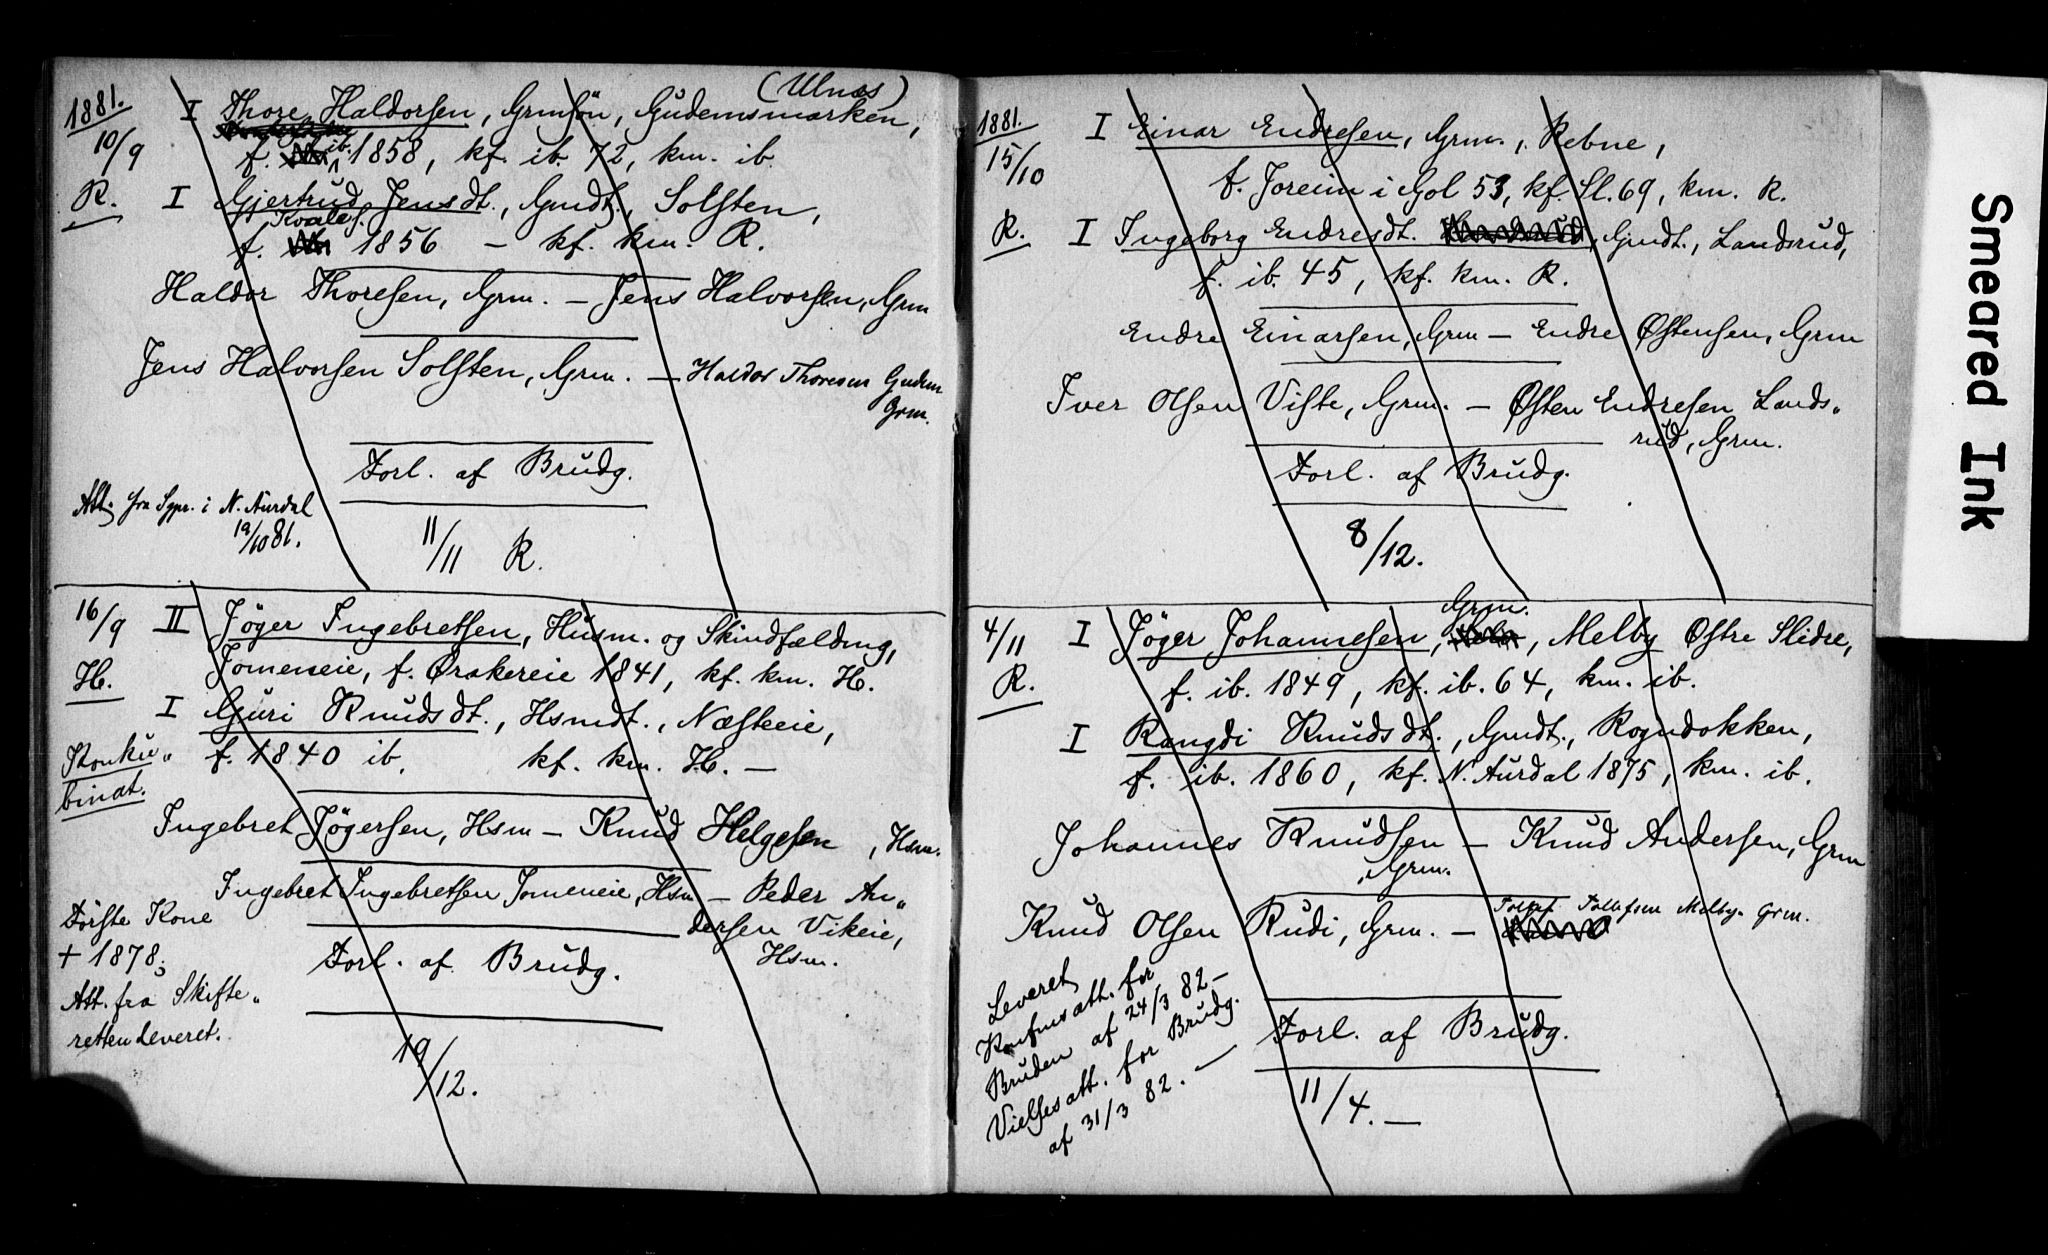 1881.
10/9
R.
(Ulnæs)
I Thore Haldorsen, Grmsøn, Gudemsmarken,
f. ib. 1858, kf. ib. 72, km. ib.
I Gjertrud Jensdt., Gmdt., Solsten,
f. Kvales. 1856 – kf. km. R.
Haldor Thoresen, Grm. – Jens Halvorsen, Grm
Jens Halvorsen Solsten, Grm. – Haldor Thoresen Gudem
Grm.
Forl. af Brudg.
Att. fra Sgpr. i N. Aurdal
19/10 81.
11/11 R.
16/9
H.
II Jøger Ingebretsen, Husm. og Skindfælding,
Jomeneie, f. Ørakereie 1841, kf. km. H.
I Guri Knudsdt., Hsmdt., Næsteie,
f. 1840 ib. kf. km. H. –
Konku„
binat.
Ingebret Jøgersen, Hsm – Knud Helgesen, Hsm.
Ingebret Ingebretsen Jomeneie, Hsm – Peder An„
dersen Vikeie,
Hsm.
Første Kone
+ 1878;
Att. fra Skifte„
retten leveret.
Forl. af Brudg.
19/12.
1881.
15/10
R.
I Einar Endresen, Grm., Rebne,
f. Joreim i Gol 53, kf. Sl. 69, km. R.
I Ingeborg Endresdt. Gmdt., Landsrud,
f. ib. 45, kf. km. R.
Endre Einarsen, Grm – Endre Østensen, Grm
Iver Olsen Viste, Grm. – Østen Endresen Lands„
rud, Grm.
Forl. af Brudg.
8/12.
4/11
R.
I Jøger Johannesen, Grm., Melby Østre Slidre,
f. ib. 1849, kf. ib. 64, km. ib.
I Rangdi Knudsdt., Gmdt., Rogndokken,
f. ib. 1860, kf. N. Aurdal 1875, km. ib.
Johannes Knudsen – Knud Andersen, Grm
, Grm.
Knud Olsen Rudi, Grm. – Tollef Tollefsen Melby. Grm.
Leveret
Konfmsatt. for
Bruden af 24/3 82–
Vielsesatt. for Brudg.
af 31/3 82. –
Forl. af Brudg.
11/4. –
Smeared Ink